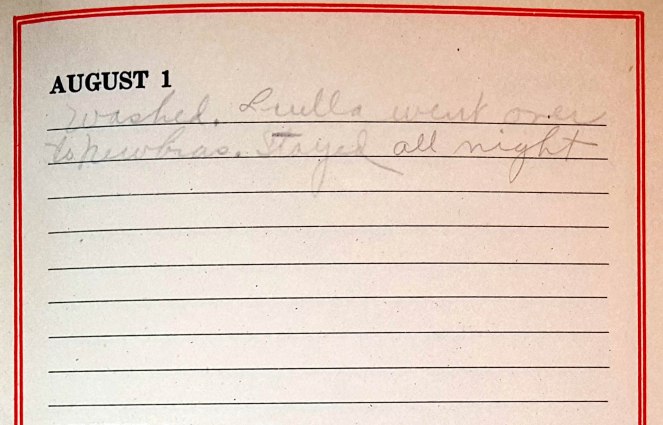 AUGUST 1
washed. Luella went over
to Newbras. Stayed all night